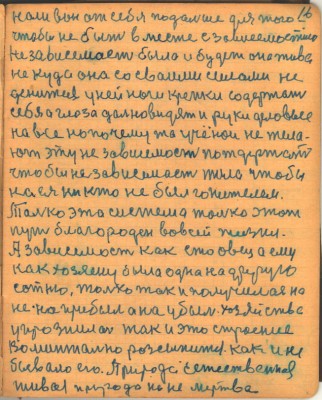 нам вон от себя подальше для того
чтобы не быть вместе с зависемостью
независемост была и будет она
не куда она со своими силами не
денится у ней ноги крепки содержат
себя а глоза далновидят и руки деловые
на все но почему та учёнои не жела-
ют эту не зависемост потдержат
чтобы независемаст жила чтобы
на ея ни кто не был гонителем.
Толко эта система толко этот
пут благороден во всей жизни.
А зависемост как сто овец а ему
как хозяину была одна на другую
сотню, толко так и получилася на
не на прибыл а на убыл. хозяйства
так и это строение
розсыпится как и не
бывало его. Природа естественная
живая природа на не мертва